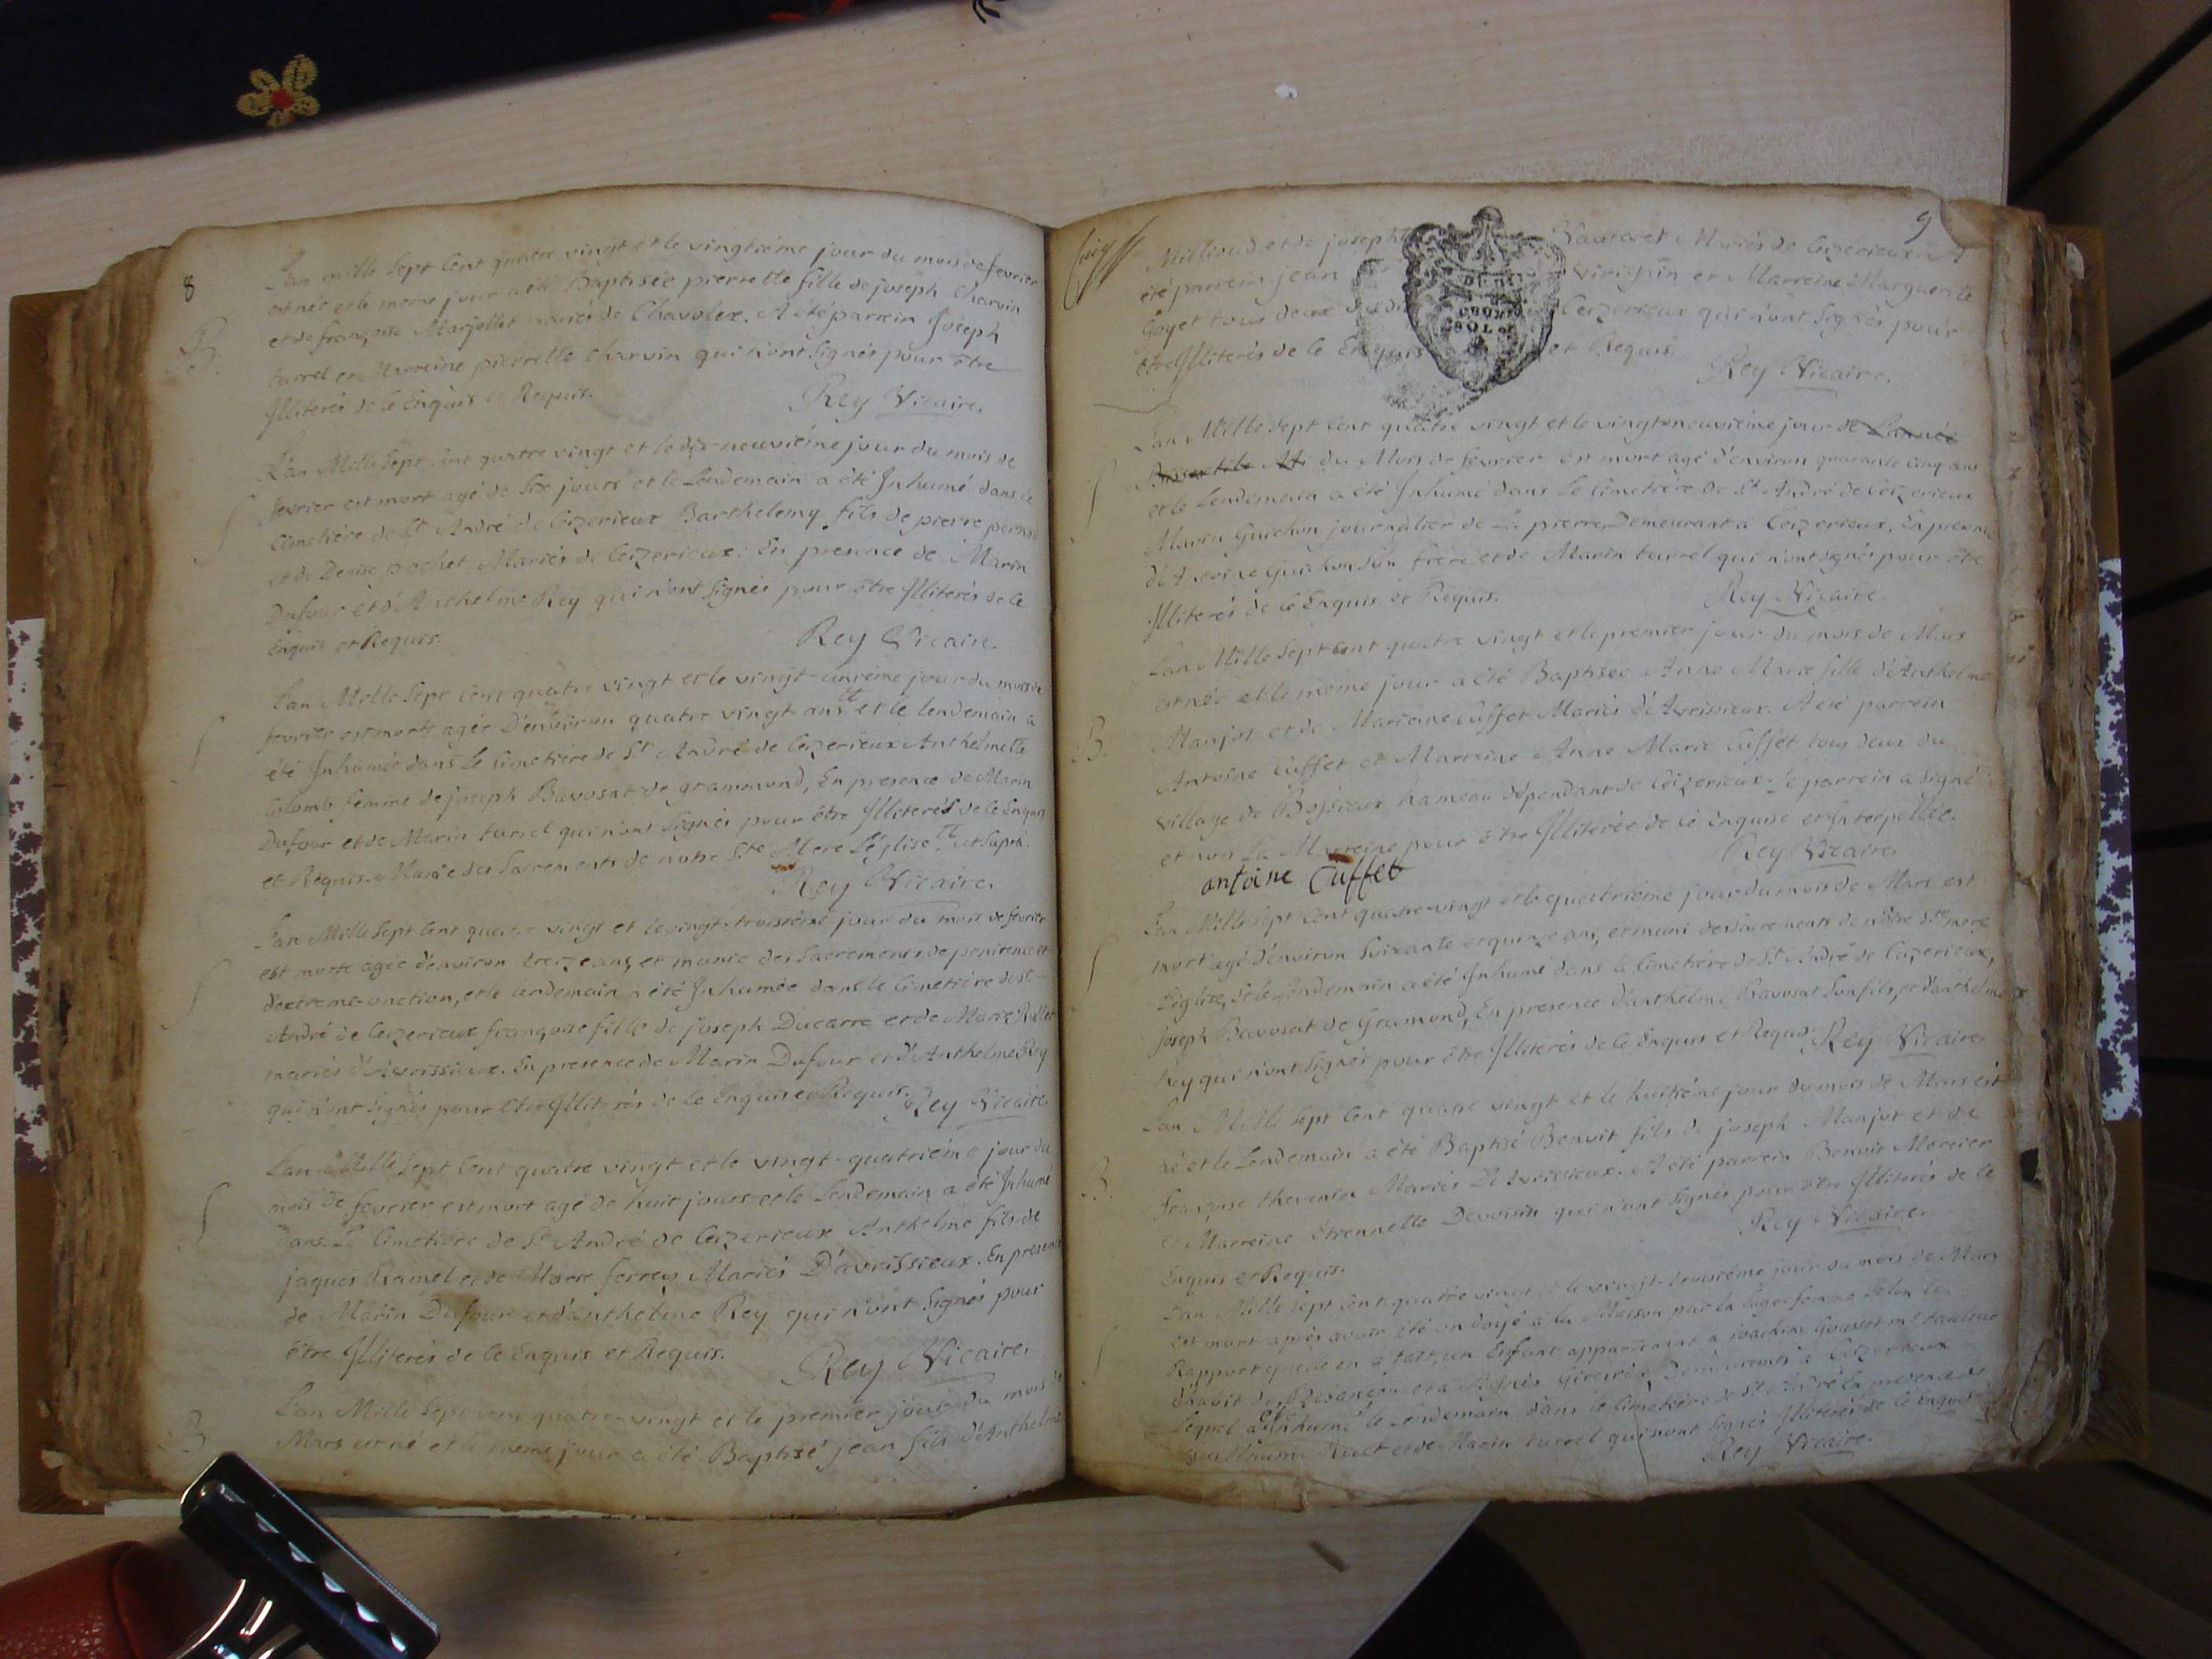 8
L'an mille Sept Cent quatre vingt et le vingtiéme jour du mois de fevrier
est née et le meme jour a été Baptisée pierrette fille de joseph Charvin
et de françoise Marjollet mariés de Chavolex. A été parrein Joseph
turrel et Marreine pierrette Charvin qui n'ont Signés pour être
B.
Illiterés de ce Enquis et Requis.
Rey Vicaire.
L'an Mille Sept cent quatre vingt et le dix-neuviéme jour du mois de
fevrier est mort agé de Six jours et le Lendemain a été Inhumé dans le
Cimetiére de St André de Ceizerieux Barthelemy fils de pierre
et de Denise pochet Mariés de Ceizerieux. En presence de Marin
Dufour et d'Anthelme Rey qui n'ont Signés pour être Illiterés de ce
Enquis et Requis.
Rey Vicaire.
L'an Mille Sept cent quatre vingt et le vingt-uniéme jour du mois de
fevrier est morte agée D'environ quatre vingt ans et le lendemain a
été Inhumée dans Le Cimetiére de St André de Ceizerieux Anthelmette
Colomb femme de joseph Bavosat de grammond, En presence de Marin
Dufour et de Marin turrel qui n'ont Signés pour être Illiterés de ce Enquis
et Requis. Munie des Sacrements de notre Ste Mere L'église ut Supra.
Rey Vicaire.
L'an Mille Sept Cent quatre vingt et le vingt-troisiéme jour du mois de fevrier
est morte agée d'environ treize ans, et munie des Sacréments de penitence et
d'extreme-onction, et le lendemain a été Inhumée dans le Cimetiére de St
André de Ceizerieux françoise fille de joseph Ducarre et de Marie Rollet
mariés d'Avrissieux. En presence de Marin Dufour et d'Anthelme Rey
qui n'ont Signés pour être Illiterés de ce Enquis et Requis. Rey Vicaire
L'an Mille Sept Cent quatre vingt et le vingt-quatriéme jour du
mois de fevrier est mort agé de huit jours et le Lendemain a été Inhumé
dans Le Cimetiére de St André de Ceizerieux Anthelme fils de
jaques Ramel et de Marie ferrey Mariés D'avrissieux. En presence
de Marin Dufour et d'anthelme Rey qui n'ont Signés pour
être Illiterés de ce Enquis et Requis.
Rey Vicaire.
L'an Mille Sept cent quatre-vingt et le premier jour du mois de
Mars est né et le meme jour a été Baptisé jean fils d'Anthelme
B
9
Millioud et de josephte Mariés de Ceizerieux. A
été parrein jean virignin et Marreine Marguerite
Goyet tous deux dudit Ceizerieux qui n'ont Signés pour
être Illiterés de ce Enquis et Requis.
Rey Vicaire.
L'an Mille Sept Cent quatre vingt et le vingt-neuviéme jour de
du Mois de fevrier est mort agé d'environ quarante cinq ans
et le Lendemain a été Inhumé dans Le Cimetiére De St André de Ceizerieux
Marin Guichon journalier de La pierre, Demeurant a Ceizerieux, En presence
d'Antoine Guichon Son frere et de Marin turrel qui n'ont signés pour être
Illiterés de ce Enquis et Requis.
Rey Vicaire.
L'an Mille Sept Cent quatre vingt et le premier jour du mois de Mars
est née et le meme jour a été Baptisée Anne Marie fille d'Anthelme
Manjot et de Mariane Cuffet Mariés d'Avrissieux. A été parrein
B.
Antoine Cuffet et Marreine Anne Marie Cuffet tous deux du
village de Bossieux hameau dépendant de Ceizerieux. Le parrein a signé
et non La Marreine pour être Illiterée de ce Enquise et Interpellée.
Rey Vicaire.
antoine Cuffet
L'an Mille Sept Cent quatre-vingt et le quatriéme jour du mois de Mars est
mort agé d'environ Soixante et quinze ans, et muni des Sacrements de nôtre Ste mere
L'église, et le Lendemain a été Inhumé dans le Cimetiére de St André de Ceizerieux,
joseph Bavosat de Gramond, En presence d'anthelme Bavosat Son fils, et d'anthelme
Rey qui n'ont Signés pour être Illiterés de ce Enquis et Requis. Rey Vicaire.
L'an Mille Sept Cent quatre vingt et le huitiéme jour du mois de Mars est
né et le Lendemain a été Baptisé Benoit fils de joseph Manjot et de
françoise thevenin Mariés D'Avrissieux. A été parrein Benoit Mercier
B.
et Marreine étiennette Devoisin qui n'ont Signés pour être Illiterés de ce
Enquis et Requis.
Rey Vicaire.
L'an Mille Sept Cent quatre vingt et le vingt-troisiéme jour du mois de Mars
est mort après avoir été ondoyé a la Maison par la Sage-femme Selon le
Rapport qu'elle en a fait, un Enfant appartenant a joachim Gousset me tailleur
d'habit de Besançon et a Agnès Demeurants a Ceizerieux
Lequel a été Inhumé le Lendemain dans le Cimetiére de St André En presence de
et de Marin turrel qui n'ont Signés Illiterés de ce Enquis
Rey Vicaire.